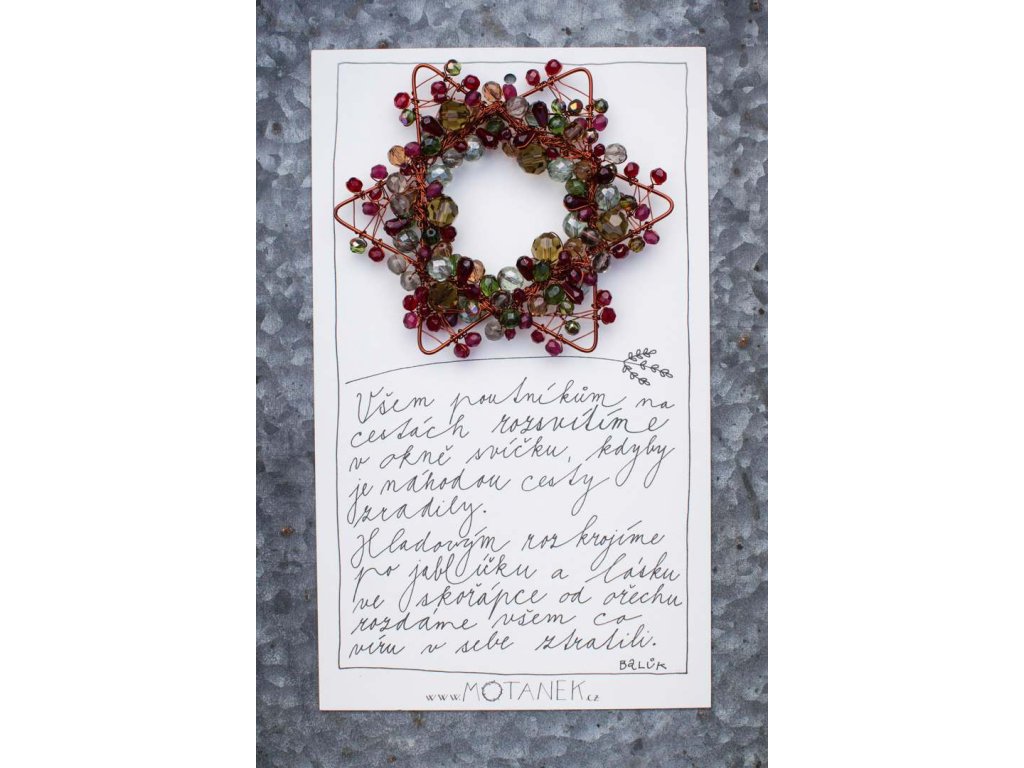 Všem poutníkům na
cestách rozsvítíme
v okně svíčku, kdyby
je náhodou cesty
zradily.
Hladovým rozkrojíme
po jablúčku a lásku
ve skořápce od ořechu
rozdáme všem co
víru v sebe ztratili.
BALŮK
www.MOTANEK.cz